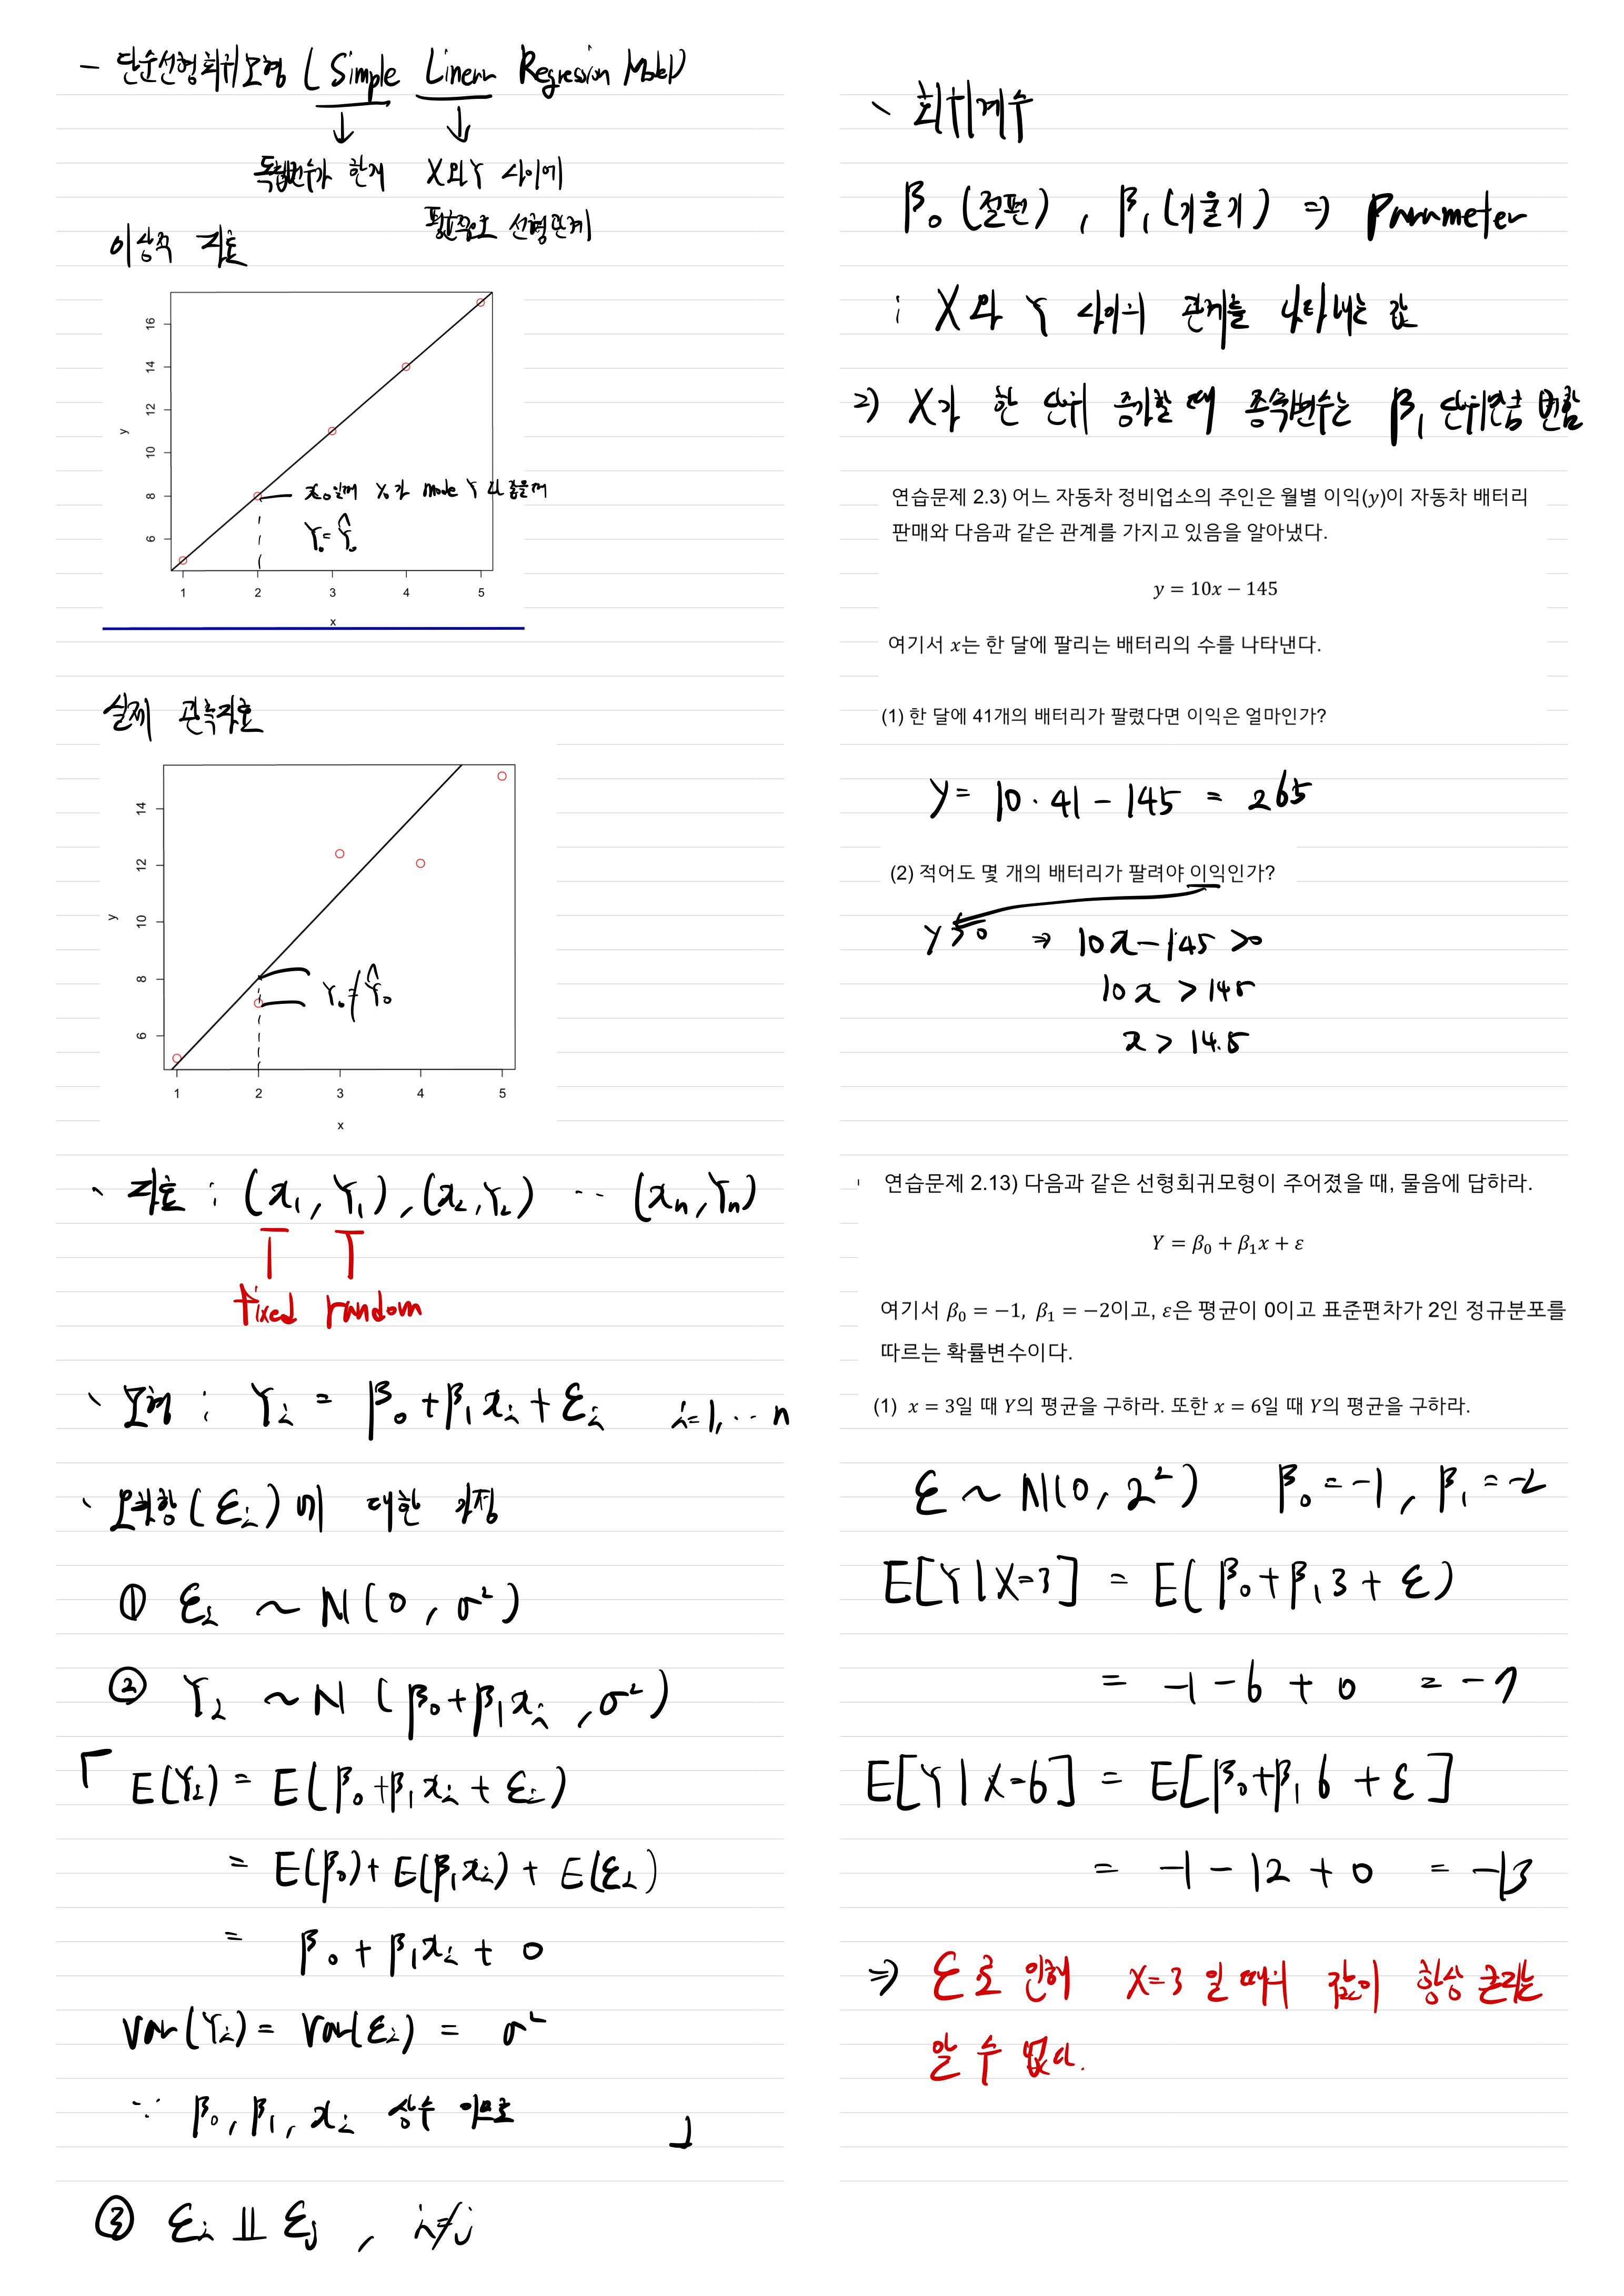 - 단순선형회귀모형 (Simple Linear Regression Model)
↓ ↓
독립변수가 한개 X와 Y 사이에
평균적으로 선형관계
이상적 자료
16
14
12
10
8
6
y
x₀일때 Y₀가 model Y
Y₀ = Ŷ₀
1 2 3 4 5
x
실제 관측자료
14
12
10
8
6
y
Y₀ ≠ Ŷ₀
1 2 3 4 5
x
、 자료 : (x₁, Y₁), (x₂, Y₂) ‥ (xₙ, Yₙ)
fixed random
、 모형 : Yᵢ = β₀ + β₁xᵢ + εᵢ i=1, ‥ n
、 오차항(εᵢ)에 대한 가정
① εᵢ ~ N(0, σ²)
② Yᵢ ~ N(β₀+β₁xᵢ, σ²)
「 E(Yᵢ) = E(β₀+β₁xᵢ + εᵢ)
= E(β₀) + E(β₁xᵢ) + E(εᵢ)
= β₀ + β₁xᵢ + 0
Var(Yᵢ) = Var(εᵢ) = σ²
∵ β₀, β₁, xᵢ 상수 이므로 」
③ εᵢ ⫫ εⱼ , i≠j
、 회귀계수
β₀ (절편) , β₁ (기울기) ⇒ Parameter
: X와 Y 사이의 관계를 나타내는 값
⇒ X가 한 단위 증가할 때 종속변수는 β₁ 단위만큼 변함
연습문제 2.3) 어느 자동차 정비업소의 주인은 월별 이익(y)이 자동차 배터리
판매와 다음과 같은 관계를 가지고 있음을 알아냈다.
y = 10x − 145
여기서 x는 한 달에 팔리는 배터리의 수를 나타낸다.
(1) 한 달에 41개의 배터리가 팔렸다면 이익은 얼마인가?
y = 10 · 41 − 145 = 265
(2) 적어도 몇 개의 배터리가 팔려야 이익인가?
y > 0 ⇒ 10x − 145 > 0
10x > 145
x > 14.5
연습문제 2.13) 다음과 같은 선형회귀모형이 주어졌을 때, 물음에 답하라.
Y = β₀ + β₁x + ε
여기서 β₀ = −1, β₁ = −2이고, ε은 평균이 0이고 표준편차가 2인 정규분포를
따르는 확률변수이다.
(1) x = 3일 때 Y의 평균을 구하라. 또한 x = 6일 때 Y의 평균을 구하라.
ε ~ N(0, 2²) β₀ = −1, β₁ = −2
E[Y|X=3] = E(β₀+β₁3 + ε)
= −1 − 6 + 0 = −7
E[Y|X=6] = E[β₀+β₁6 + ε]
= −1 − 12 + 0 = −13
⇒ ε로 인해 X=3 일 때의 값이 항상 큰지는
알 수 없다.